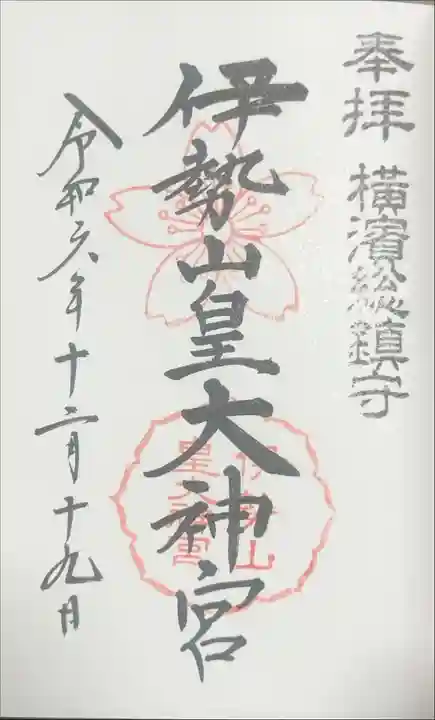 奉拝 横濱総鎮守
伊勢山皇大神宮
伊勢山
皇大神宮
令和六年十二月十九日